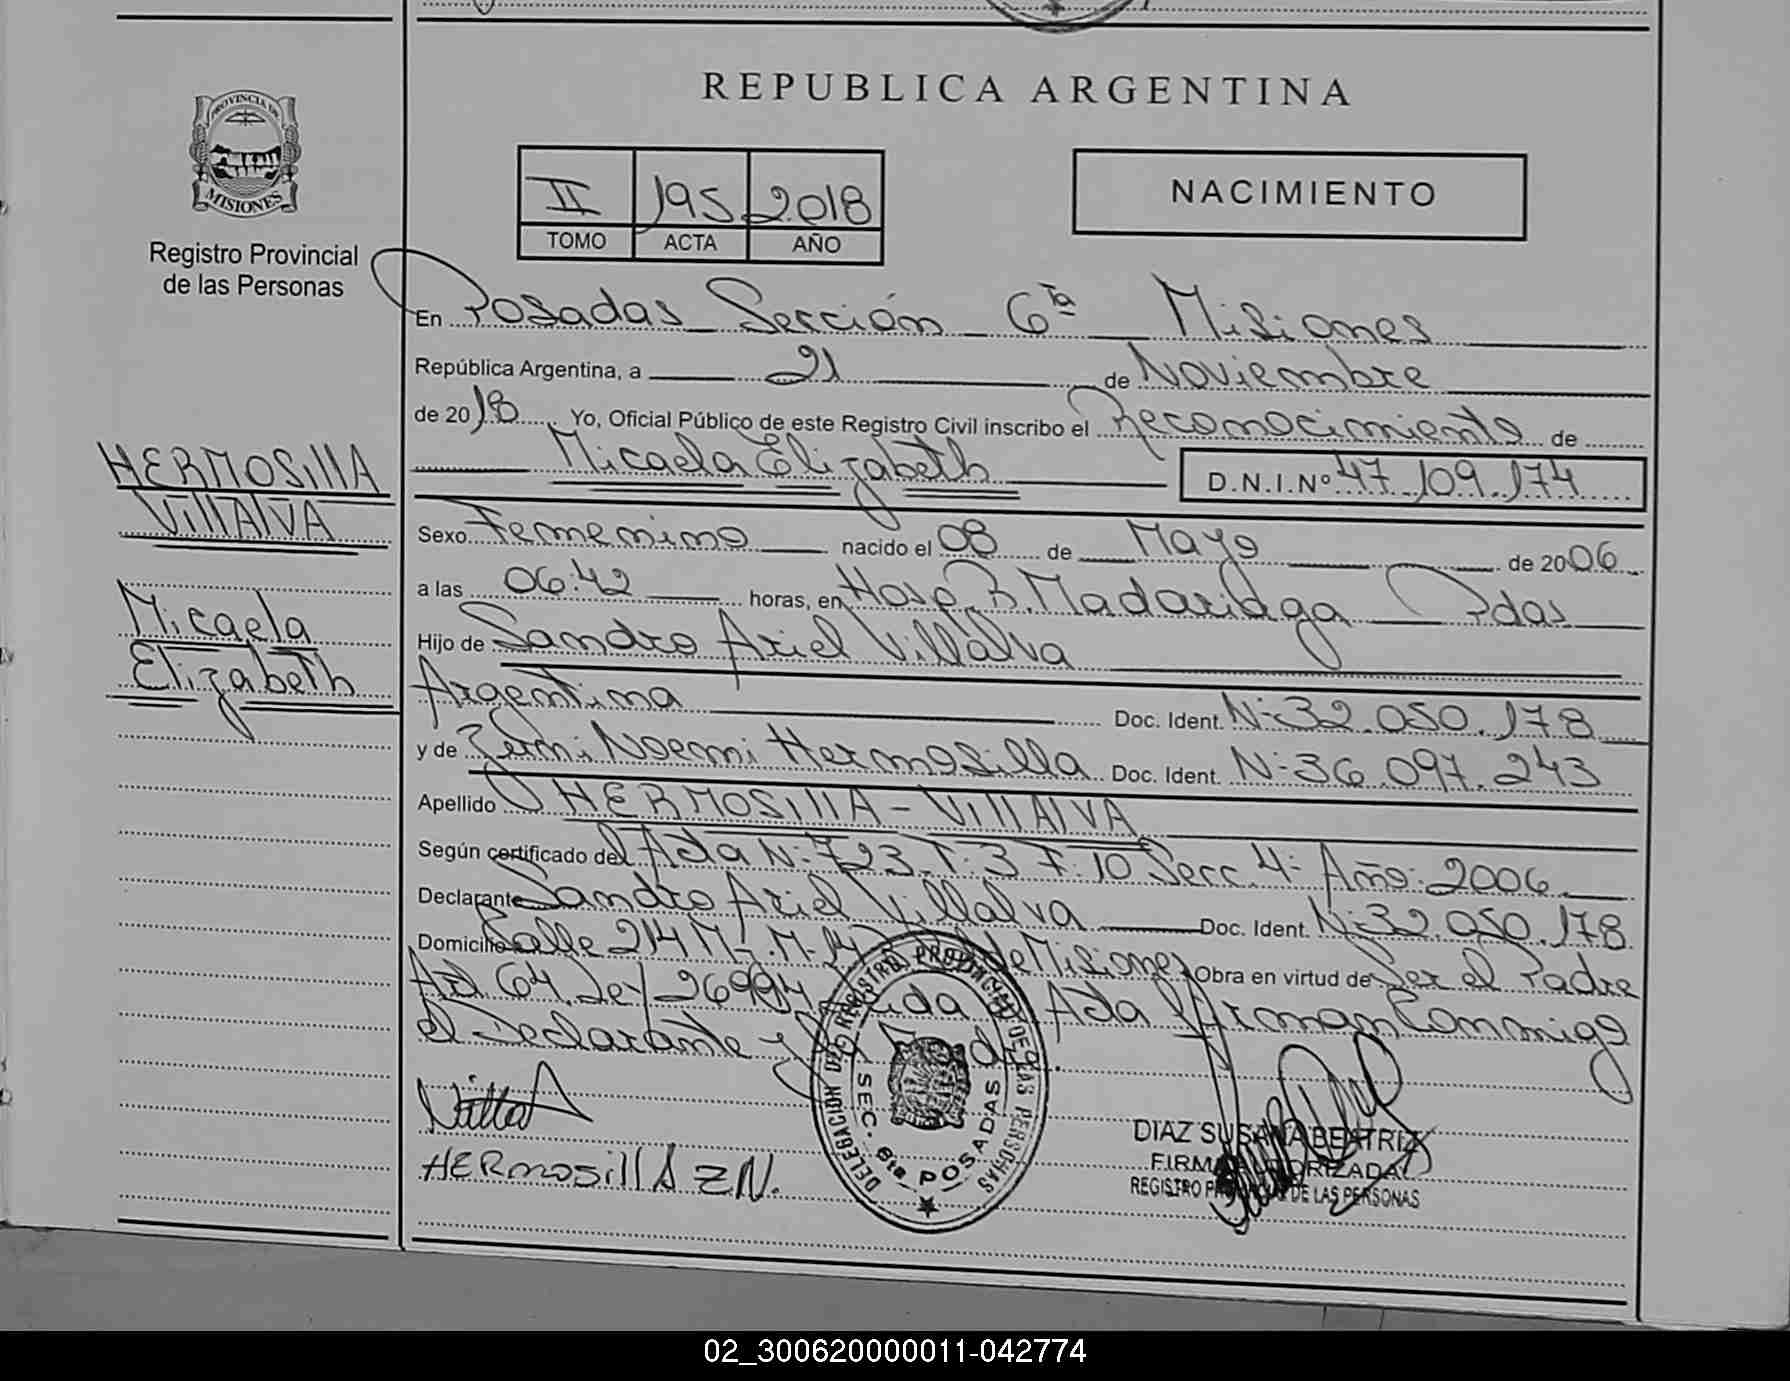 REPUBLICA ARGENTINA
PROVINCIA DE
MISIONES
Registro Provincial
de las Personas
II 195 2018
TOMO ACTA AÑO
NACIMIENTO
En Posadas Sección 6ta Misiones
República Argentina, a 21 de Noviembre
de 2018 Yo, Oficial Público de este Registro Civil inscribo el Reconocimiento de
Micaela Elizabeth D.N.I.Nº 47.109.174
HERMOSIllA
VillAlVA
Micaela
Elizabeth
Sexo Femenino nacido el 08 de Mayo de 2006
a las 06:42 horas, en Hosp. R. Madariaga Pdas
Hijo de Sandro Ariel Villalva
Argentina Doc. Ident. N:32.050.178
y de Noemi Hermosilla Doc. Ident. N:36.097.243
Apellido HERMOSIllA - VIllAlVA
Según certificado del Acta N: 723 T: 3 F: 10 Secc. 4: Año: 2006
Declarante Sandro Ariel Villalva Doc. Ident. N:32.050.178
Domicilio Calle 214 de Misiones Obra en virtud de Ser el Padre
Art 64. Ley 26994 Acta Firman Conmigo
el Declarante y
HERmosillA Z N.
DELEGACION DEL REGISTRO PROVINCIAL DE LAS PERSONAS
SEC. 6ta POSADAS
DIAZ SUSANA BEATRIZ
FIRMA AUTORIZADA
REGISTRO PROVINCIAL DE LAS PERSONAS
02_300620000011-042774